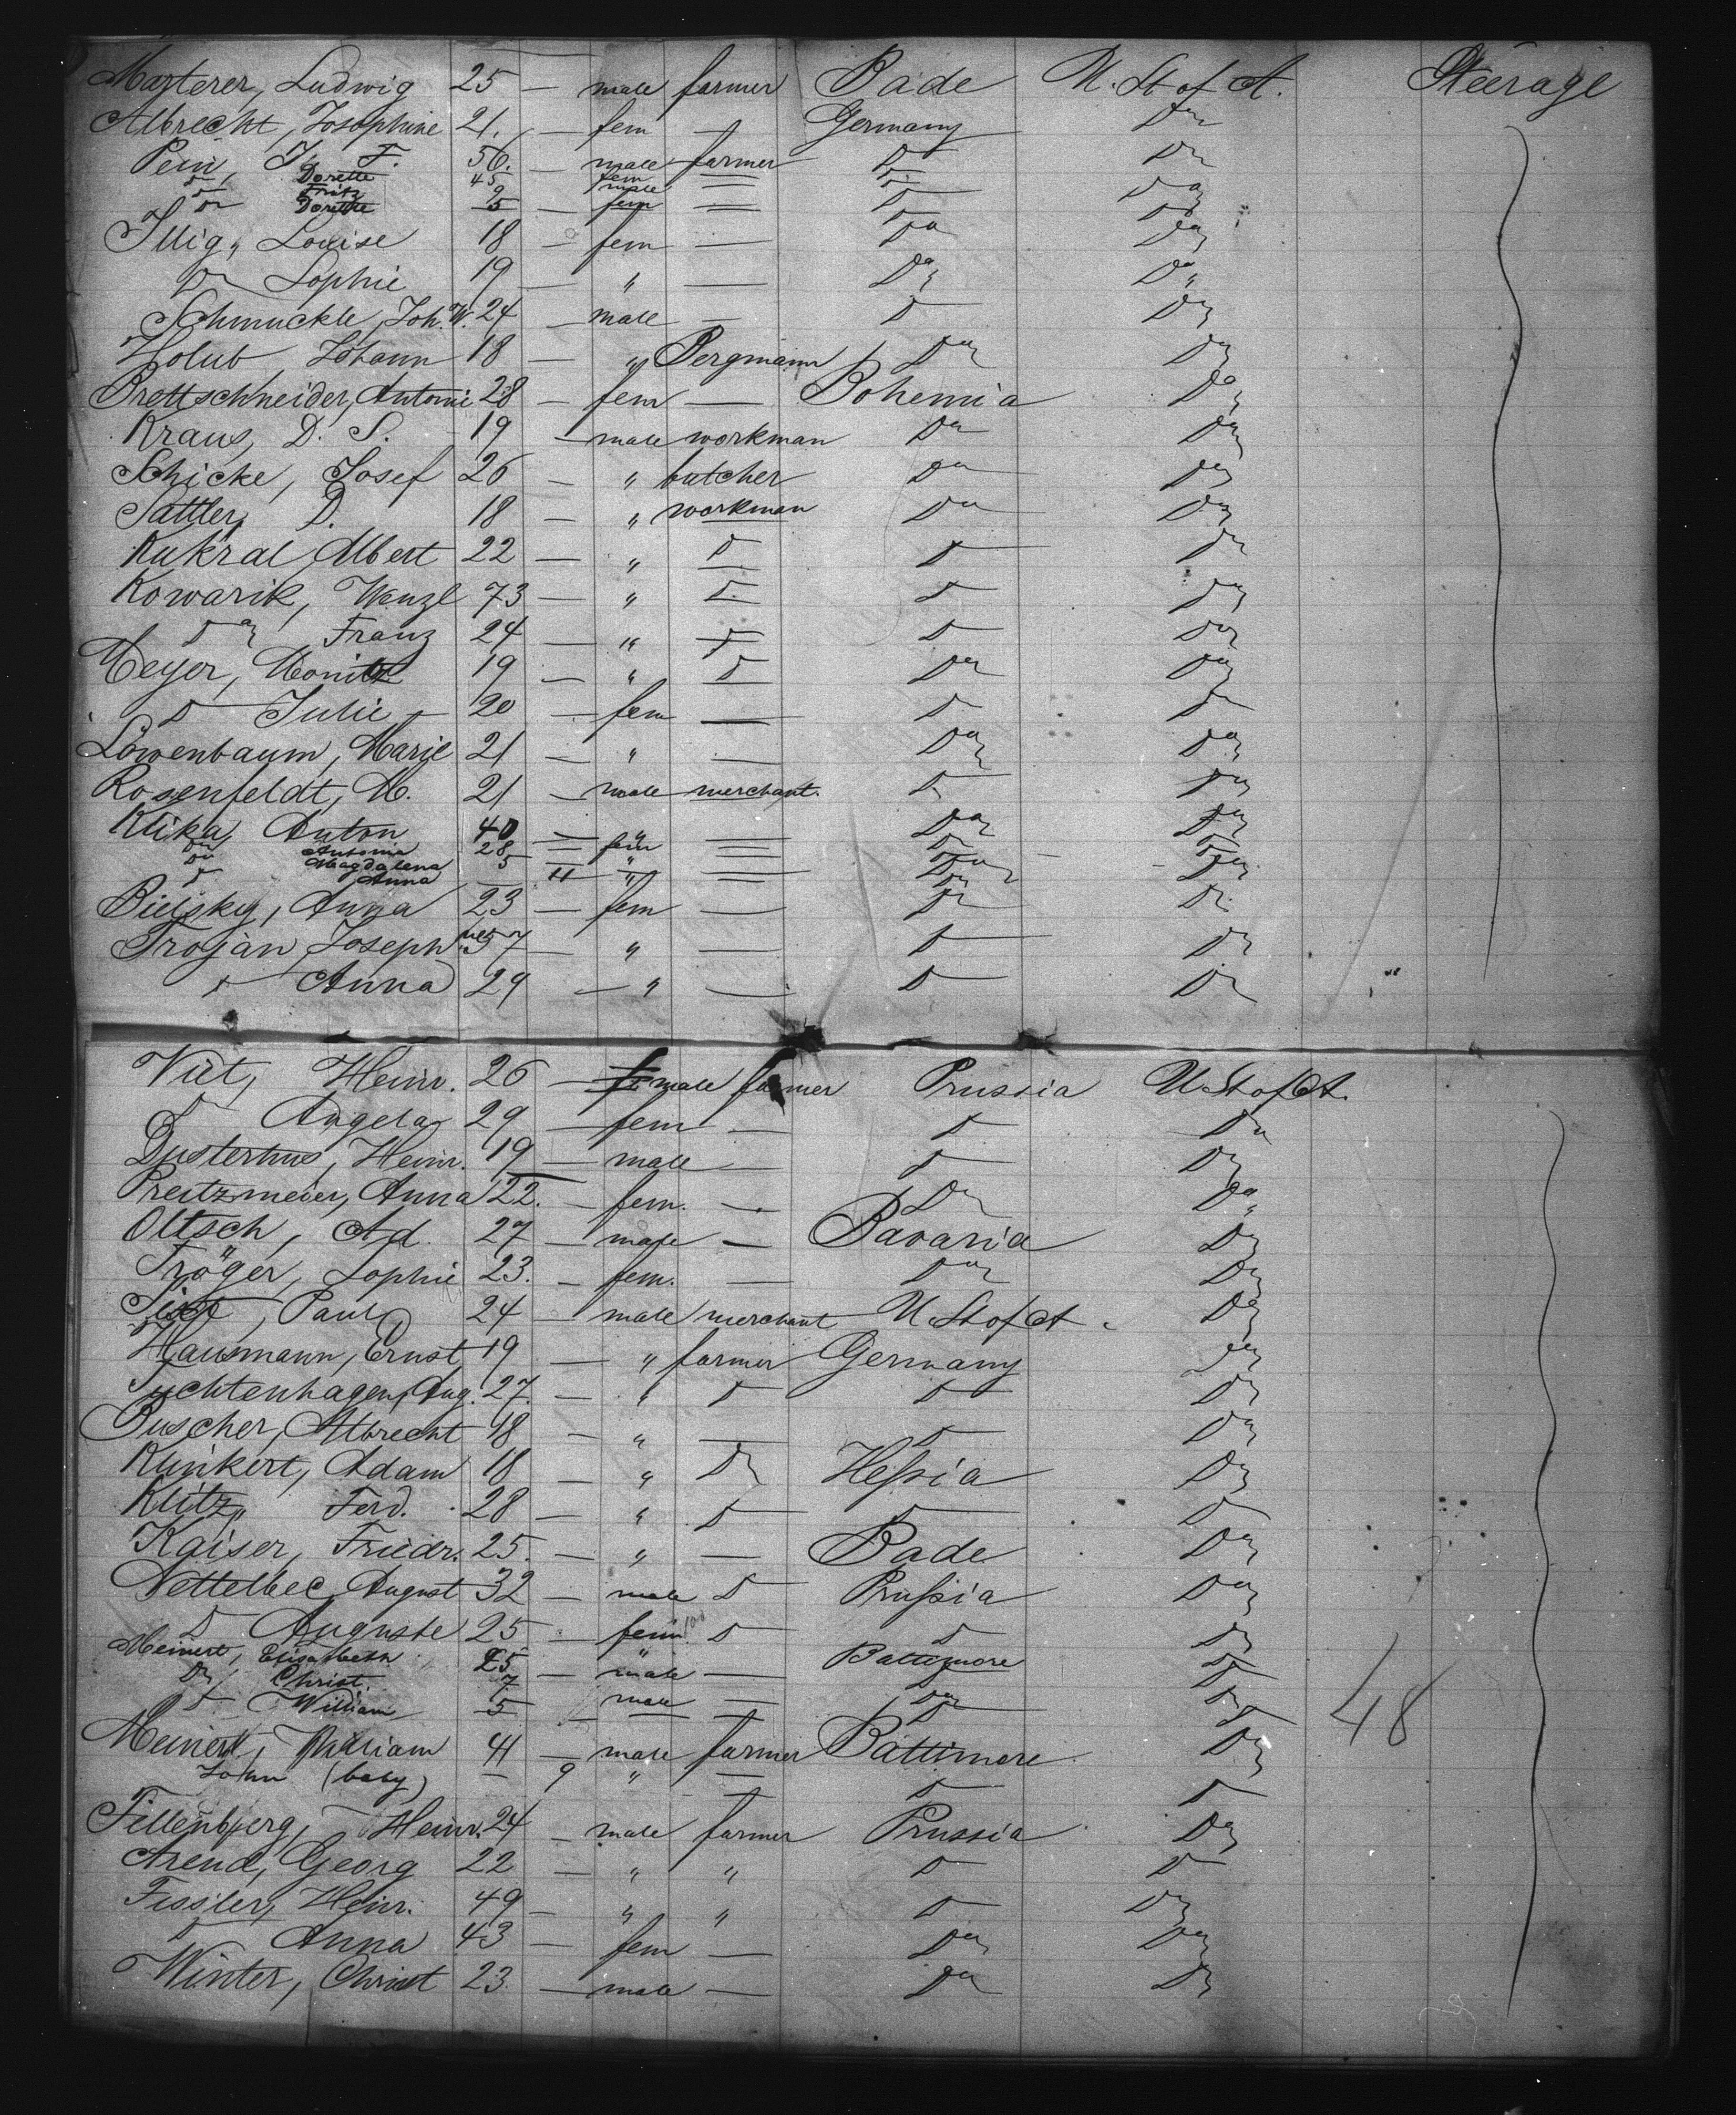 Marterer, Ludwig 25 — male farmer Bade U. St of A. Steerage
Albrecht, Josephine 21. — fem — Germany Do
Pein, J. F. 56. — male farmer Do Do
Do Dorette 45 fem — Do
Do Fritz 9 male — Do Do
Do Dorette 5 — fem — Do Do
Illig, Louise 18 — fem — Do Do
Do Sophie 19 — " — Do Do
Schmuckle, Joh. W. 24 — male — Do Do
Holub Johann 18 — " Bergmann Do Do
Brettschneider, Antonie 28 — fem — Bohemia Do
Kraus, D. S. 19 — male workman Do Do
Schicke, Josef 26 — " butcher Do Do
Sattler, D. 18 — " workman Do Do
Kukral Albert 22 — " Do Do Do
Kowarik, Wenzl 73 — " Do Do Do
Do Franz 24 — " Do Do Do
Meyer, Moritz 19 — " Do Do Do
Do Julie 20 — fem — Do Do
Löwenbaum, Marie 21 — " — Do Do
Rosenfeldt, M. 21 — male merchant. Do Do
Klika, Anton 40 — — Do Do
Do Antonia 28 — fem — Do Do
Do Magdalena 5 — " — Do Do
Do Anna — 11 " — Do
Bielsky, Anna 23 — fem — Do Do
Trojan, Joseph 37 — " — Do Do
Do Anna 29 — " — Do Do
Viet, Heinr. 26 — male farmer Prussia U. St of A.
Do Angela 29 — fem — Do Do
Dusterhus, Heinr. 19 — male — Do Do
Preitzmeier, Anna 22. — fem. — Do Do
Oltsch, Ad. 27 — male — Bavaria Do
Tröger, Sophie 23. — fem. — Do Do
Paul, 24 — male merchant U. St of A. Do
Hausmann, Ernst 19 — " farmer Germany Do
Tuchtenhagen, Aug. 27. — " Do Do Do
Buscher, Albrecht 48 — " — Do Do
Klinkert, Adam 18 — " Do Hessia Do
Klitz, Ferd. 28 — " Do Do Do
Kaiser, Friedr. 25. — " — Bade Do
Nettelbec, August 32 — male Do Prussia Do
Do Auguste 25 — fem Do Do Do
Meinert, Elisabeth 25 " Baltimore Do
Do Christ. 7 — male — Do Do
Do William 5 — male — Do Do
48
Meinert, William 41 — male farmer Baltimore Do
John (baby) — 9 " — Do Do
Fellenberg, Heinr. 24 — male farmer Prussia Do
Arend, Georg 22 — " " Do Do
Fissler, Heinr. 49 — " " Do Do
Do Anna 43 — fem — Do Do
Winter, Christ 23. — male — Do Do